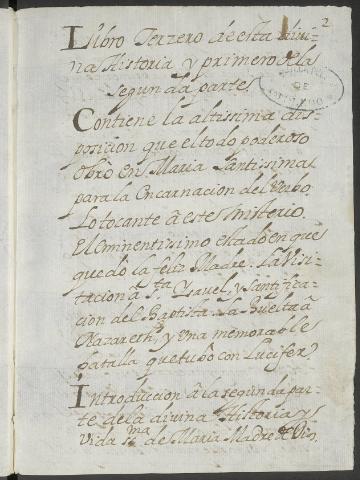 2
Libro Terzero de esta divi-
na Historia y primero de la
segunda parte
Contiene la altissima dis-
posicion que el todo poderoso
obró en Maria Santissima
para la Encarnacion del Verbo
Lo tocante á este misterio.
El eminentissimo estado en que
quedó la feliz Madre. La Visi-
tacion á Sta Ysavel, y Santifica-
cion del Baptista. La buelta á
Nazareth, y una memorable
batalla que tubo con Lucifer.
Introduccion á la segunda par-
te de la divina Historia y
Vida SSma de Maria Madre de Dios.